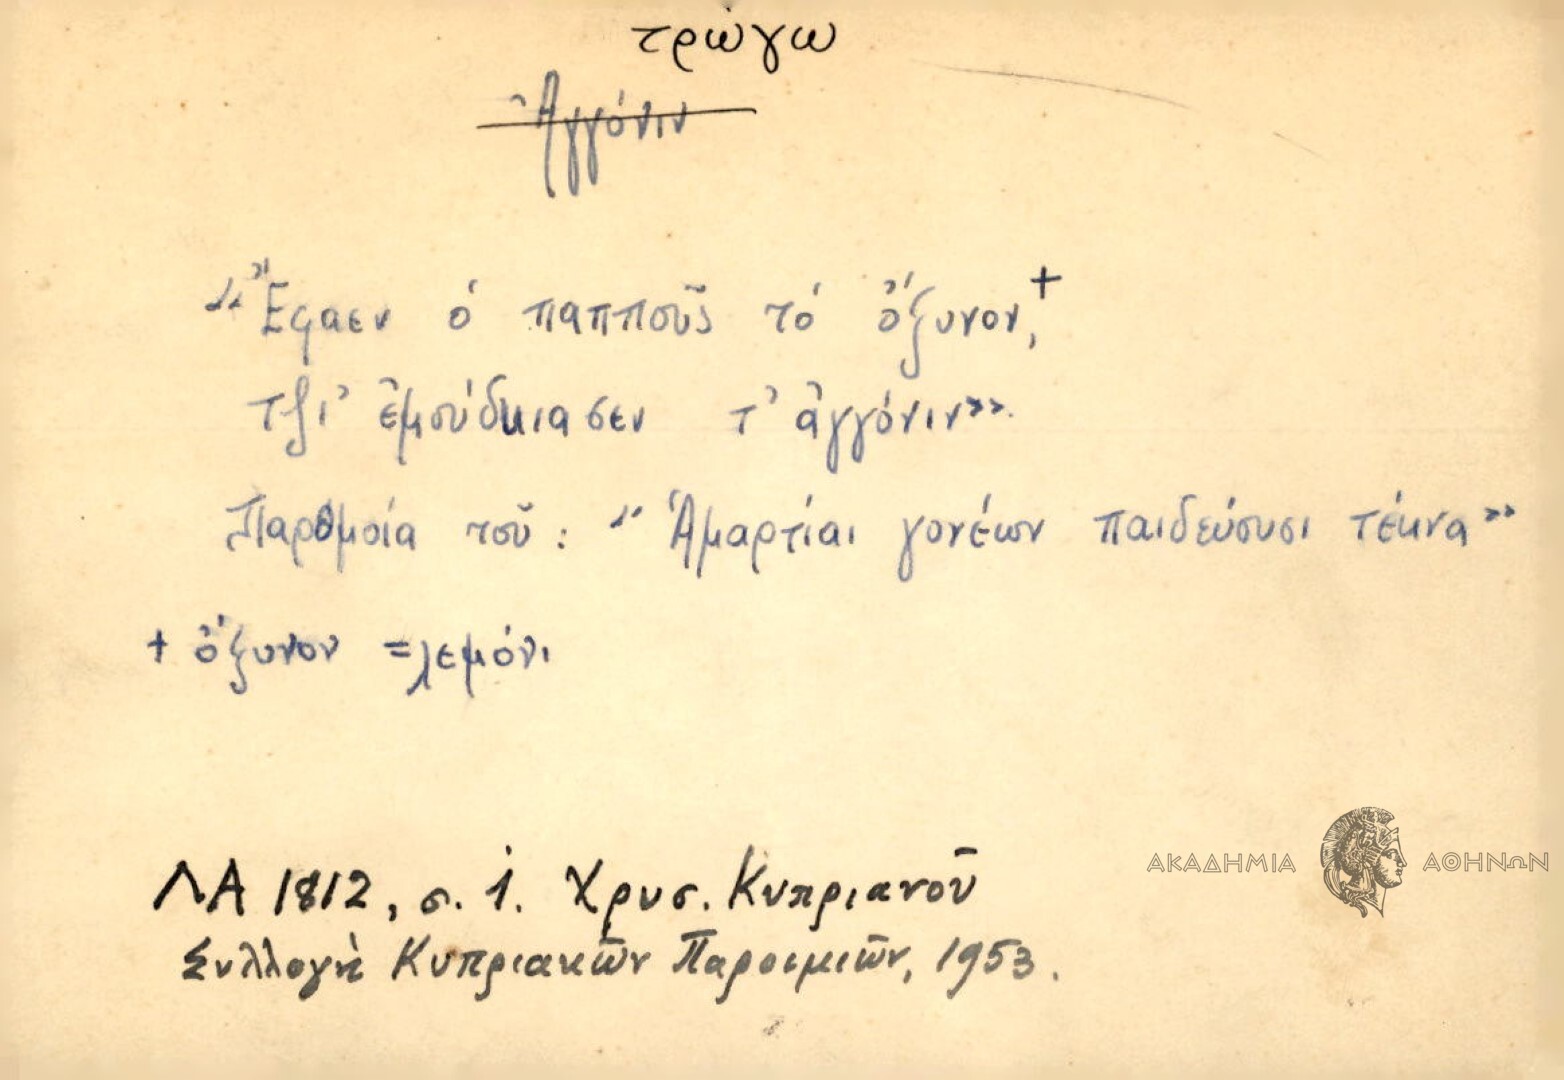 τρώγω
Ἀγγόνιν
"Ἔφαεν ὁ παπποῦς τό ὄξυνον,+
τζι' ἐμούδκιασεν τ' ἀγγόνιν».
Παρομοία τοῦ: "Ἁμαρτίαι γονέων παιδεύουσι τέκνα»
+ ὄξυνον = λεμόνι
ΑΚΑΔΗΜΙΑ ΑΘΗΝΩΝ
ΛΑ 1812, σ. 1. Χρυσ. Κυπριανοῦ
Συλλογὴ Κυπριακῶν Παροιμιῶν, 1953.